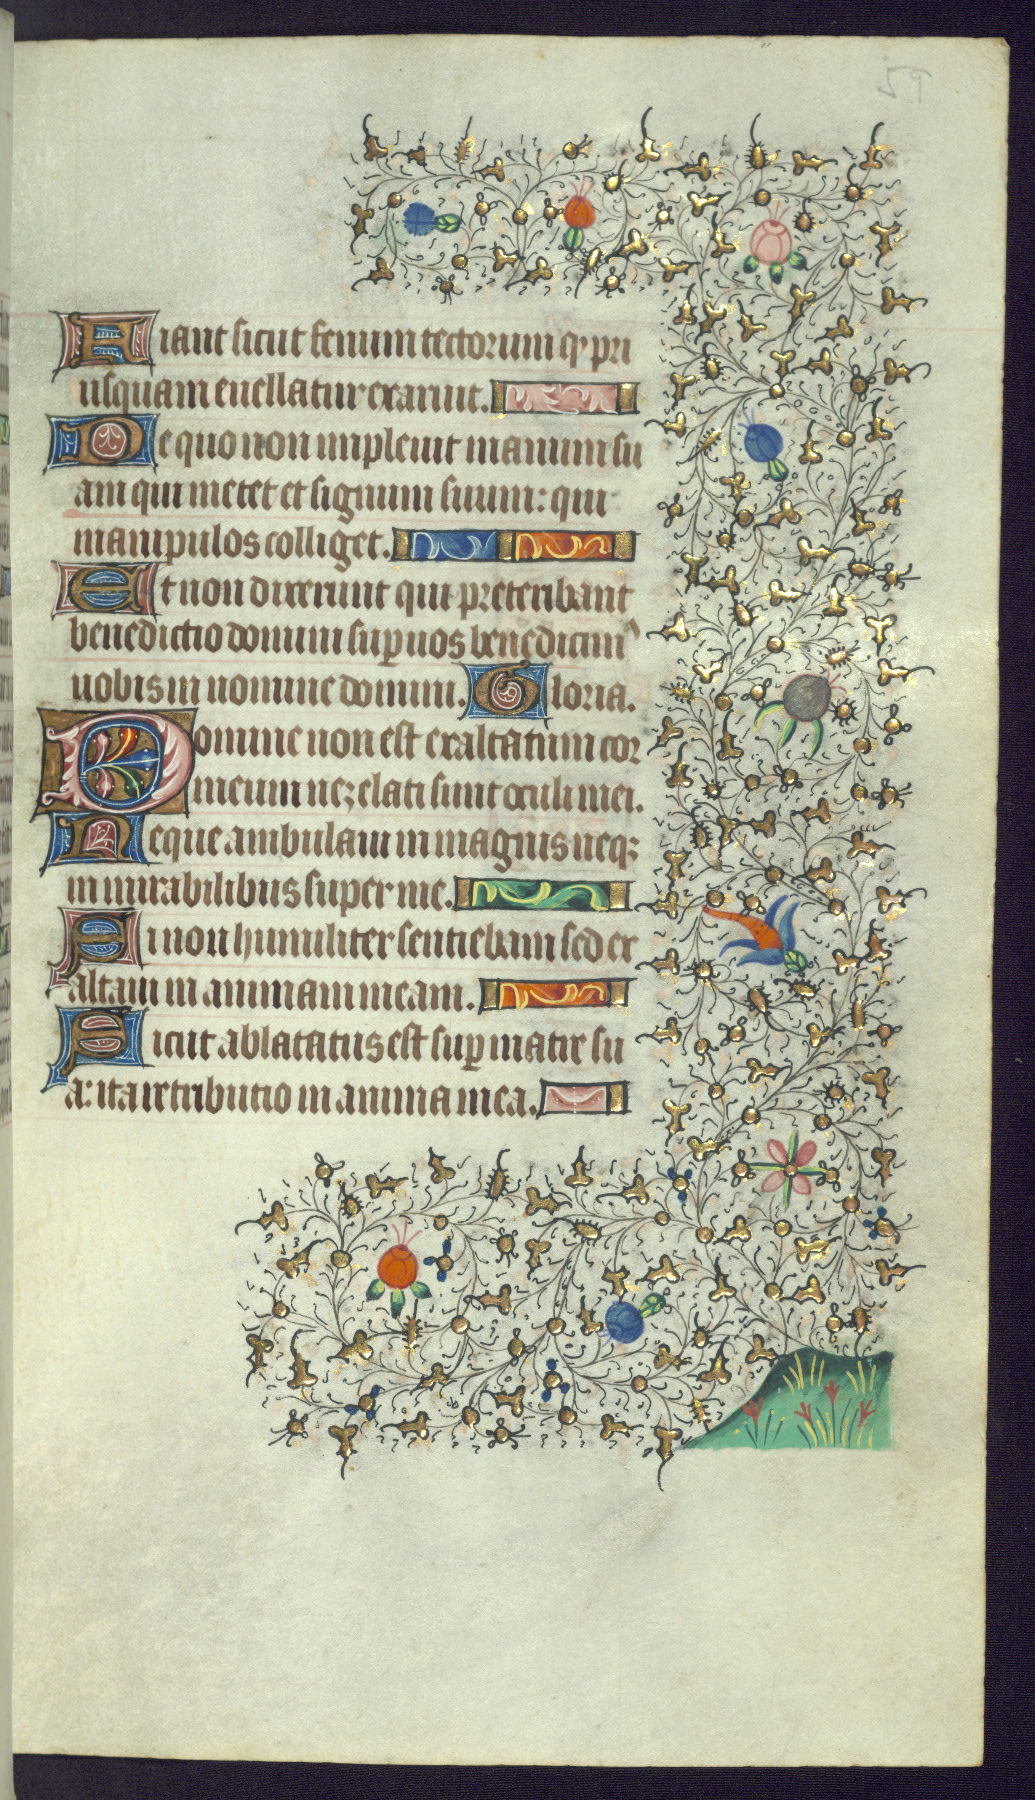 59
Fiant sicut fenum tectorum q pri
usquam euellatur exaruit.
De quo non impleuit manum su
am qui metet et signum suum: qui
manipulos colliget.
Et non dixerunt qui preteribant
benedictio domini sup uos benedicim9
uobis in nomine domini. Gloria.
Domine non est exaltatum cor
meum neqꝫ elati sunt oculi mei.
Neque ambulaui in magnis neqꝫ
in mirabilibus super me.
Si non humiliter sentiebam sed ex
altaui in animam meam.
Sicut ablatatus est sup matre su
a: ita retributio in anima mea.